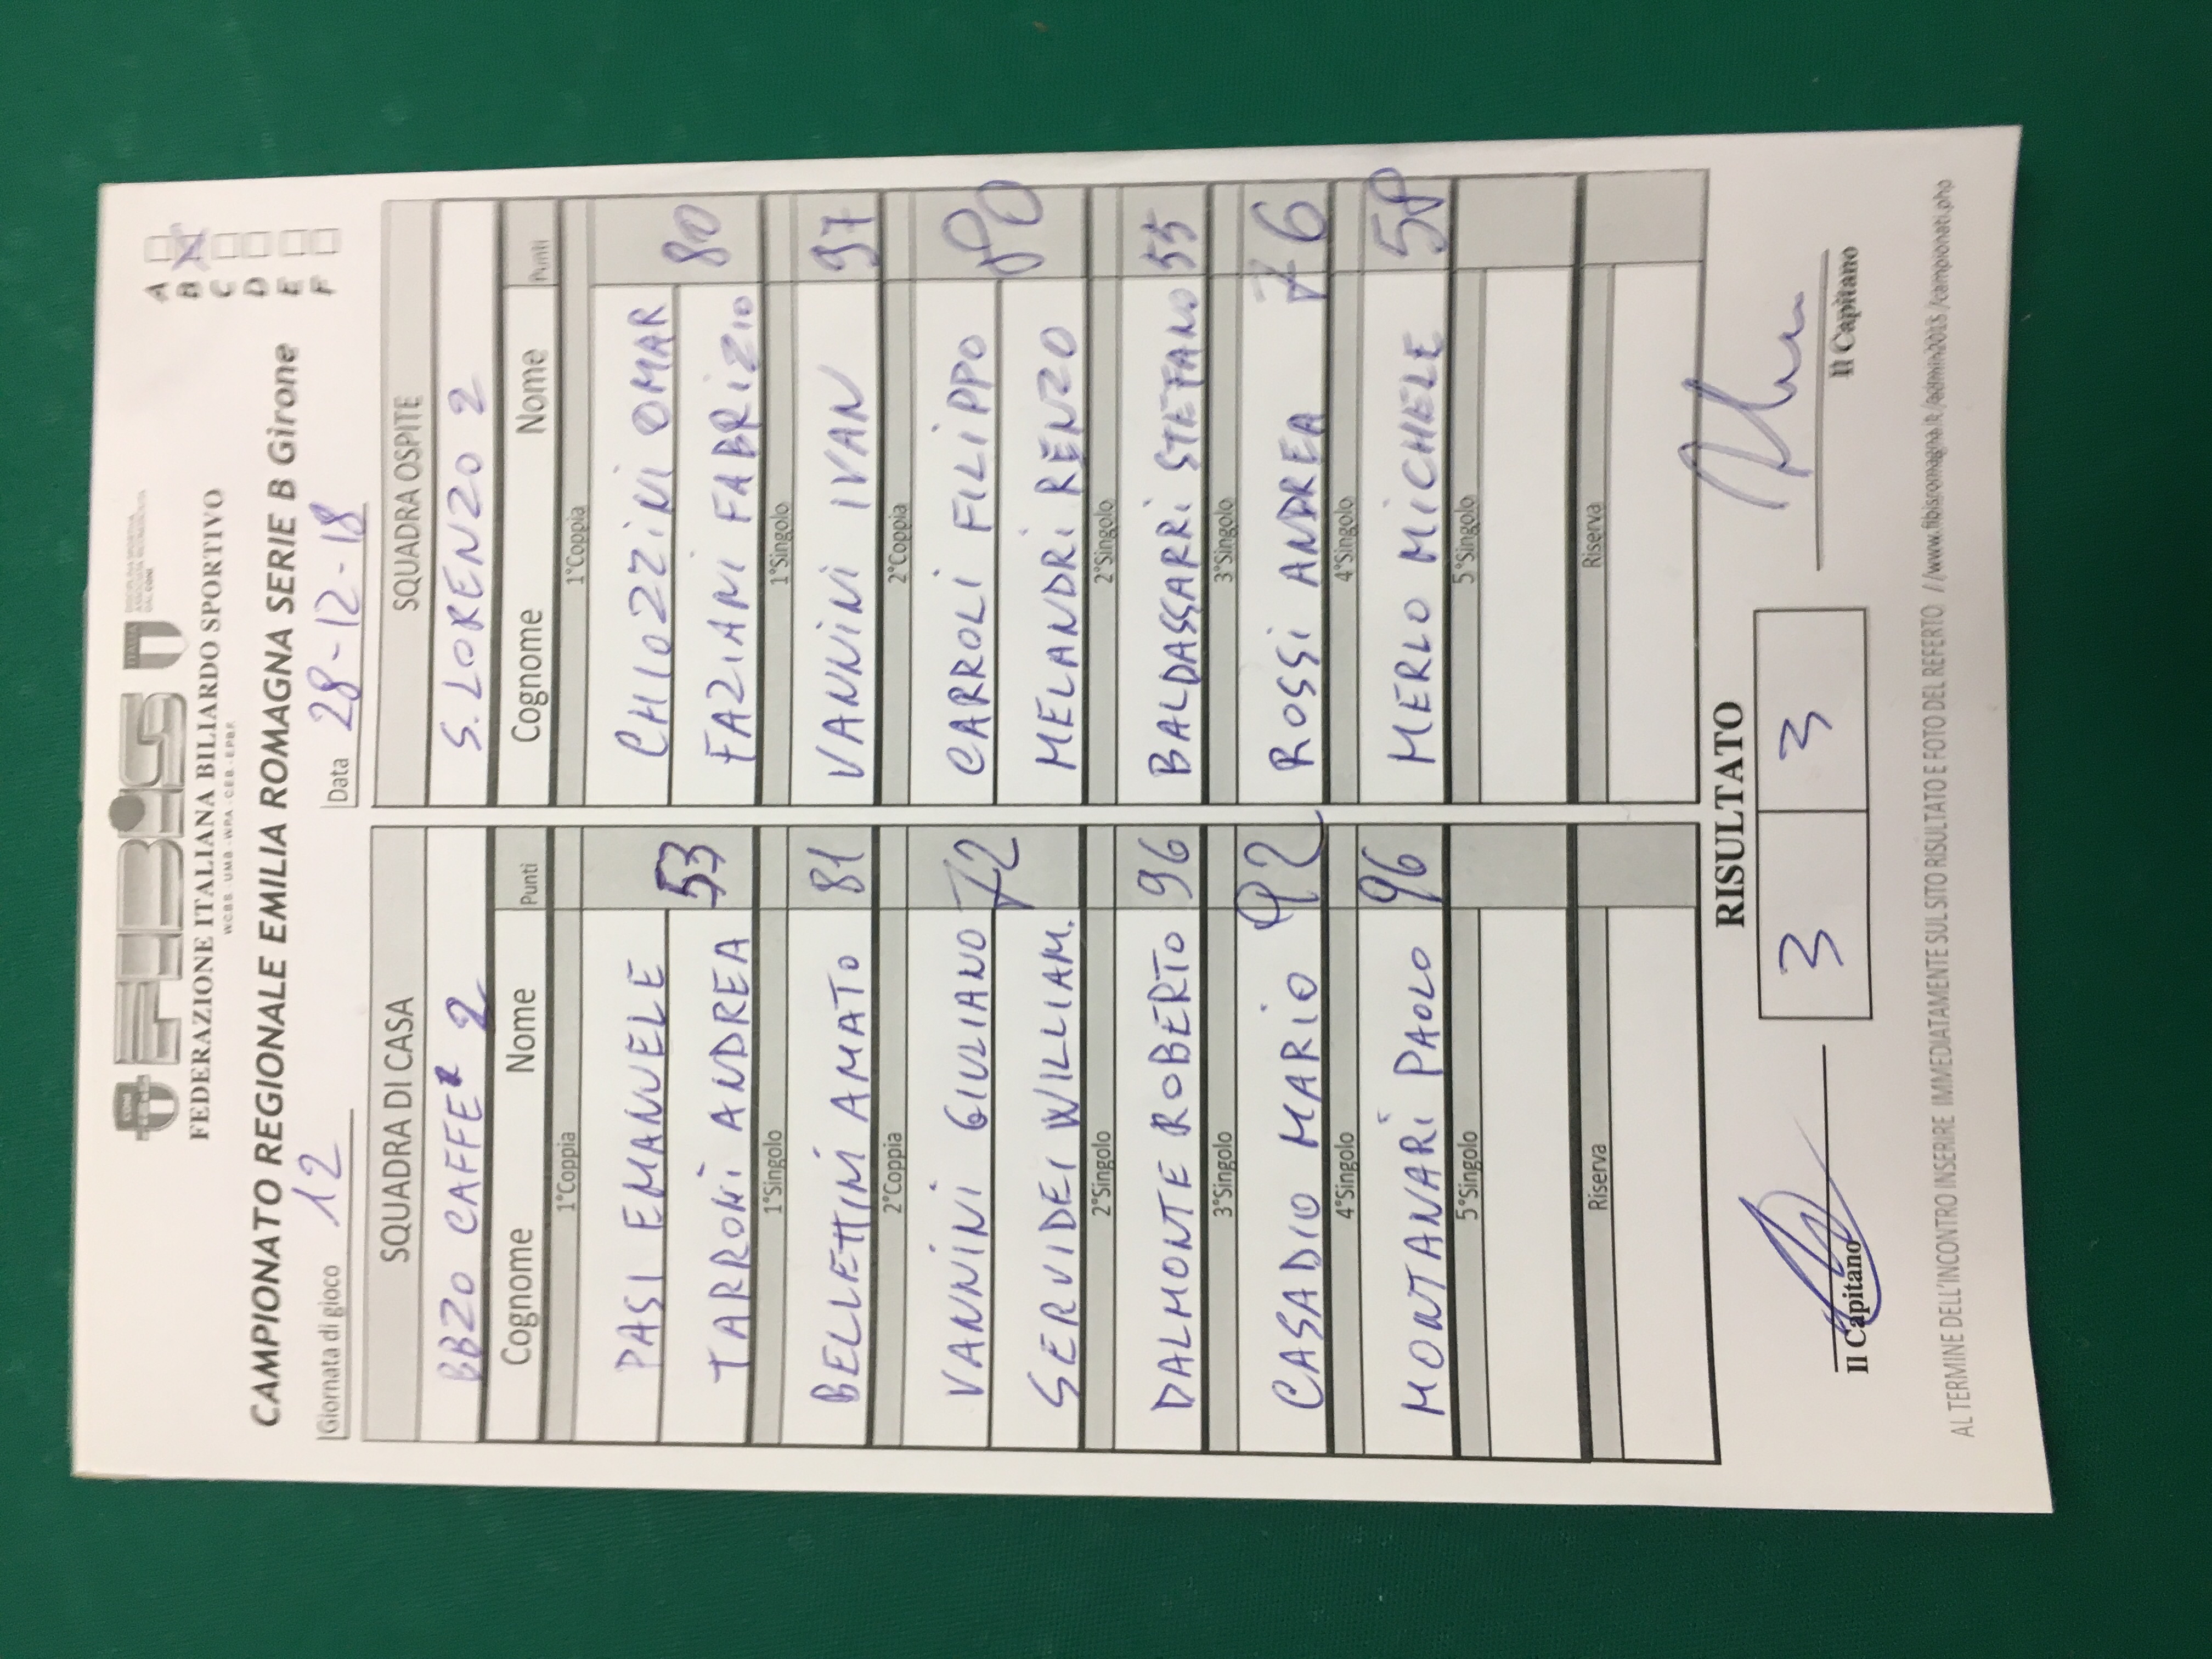 FIBiS
ITALIA
CONI
FEDERAZIONE ITALIANA BILIARDO SPORTIVO
W.C.B.S. - U.M.B. - W.P.A. - C.E.B. - E.P.B.F.
CAMPIONATO REGIONALE EMILIA ROMAGNA SERIE B Girone
A
B X
C
D
E
F
Giornata di gioco 12
Data 28-12-18
SQUADRA DI CASA SQUADRA OSPITE
BBZO CAFFE' 2 S. LORENZO 2
Cognome Nome Punti Cognome Nome Punti
1°Coppia 1°Coppia
PASI EMANUELE CHIOZZINI OMAR
TARRONI ANDREA 53 FAZIANI FABRIZIO 80
1°Singolo 1°Singolo
BELLETTINI AMATO 81 VANNINI IVAN 97
2°Coppia 2°Coppia
VANNINI GIULIANO 72 CARROLI FILIPPO 80
SERVIDEI WILLIAM. MELANDRI RENZO
2°Singolo 2°Singolo
DALMONTE ROBERTO 96 BALDASSARRI STEFANO 55
3°Singolo 3°Singolo
CASADIO MARIO 92 ROSSI ANDREA 76
4°Singolo 4°Singolo
MONTANARI PAOLO 96 MERLO MICHELE 58
5°Singolo 5°Singolo
Riserva Riserva
RISULTATO
3 3
Il Capitano Il Capitano
AL TERMINE DELL'INCONTRO INSERIRE IMMEDIATAMENTE SUL SITO RISULTATO E FOTO DEL REFERTO //www.fibisromagna.it/admin2015/campionati.php